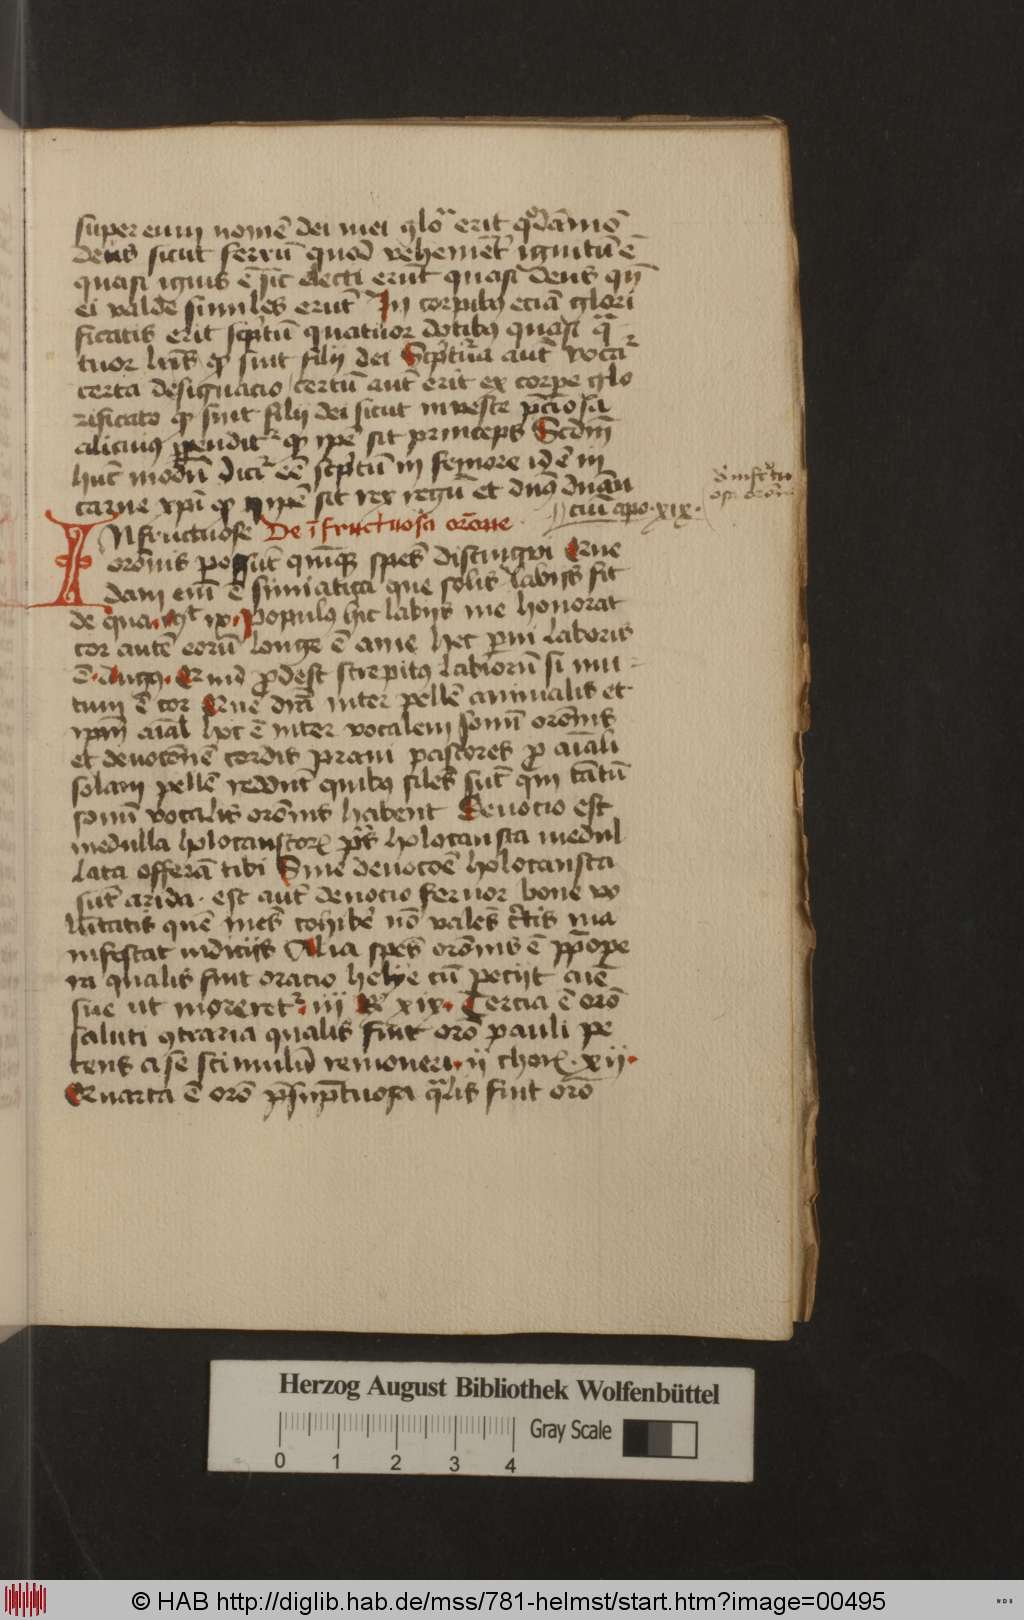 super eum nomē dei mei glō erit q̊dāmō
deus sicut ferrū quod vehemēt ignitū ē
quasi ignis ē sic electi erūt quasi deus qn̄
ei valde similes erūt In corpibꝰ eciā glori
ficatis erit scptū quatuor dotibꝰ quasi qua
tuor lrīs ꝙ sint filij dei Scptura aut̄ voca
certa designacio certū aut̄ erit ex corpe glo
rificato ꝙ sint filij dei sicut in veste p̄ciosa
alicuiꝰ ꝙ ip̄e sit princeps Scdm̄
hūc modū dicit̄ eē scptū in femore id ē in
carne xp̄i ꝙ ip̄e sit rex regū et dn̄s dnān
ciū apo · xix ·
INfructuose De īfructuosa orōne
orōnis possūt quinqꝫ spēs distingwi Que
dam enī ē simiatica que solis labijs fit
de qua · mt̄ xv · Populꝰ hic labijs me honorat
cor autē eorū longe ē a me hec parui laboris
ē · Augꝰ · Quid prodest strepitꝰ labiorū si mu
tum ē cor Que dr̄a inter pellē animalis et
ip̄m aīal hec ē inter vocalem sonū orōnis
et deuotōnē cordis praui pastores pro aīali
solam pellē reddūt quibꝰ siles sūt qui tātū
sonū vocalis orōnis habent Deuocio est
medulla holocaustorꝫ ps̄ holocausta medul
lata offerā tibi Sine deuotōe holocausta
sūt arida · est aut̄ deuocio feruor bone vo
lūtatis quē mēs cohibē nō valēs c̄tis ma
nifestat indicijs Alia spēs orōnis ē ppope
ra qualis fuit oracio helye cū petijt aīe
sue ut moreret̄ · iij R xix · Tercia ē orō
saluti ꝯtraria qualis fuit orō pauli pe
tens a se stimulū remoueri · ij chorꝫ · xij ·
Quarta ē orō p̄sūptuosa qualis fuit orō
Herzog August Bibliothek Wolfenbüttel
Gray Scale
0 1 2 3 4
© HAB http://diglib.hab.de/mss/781-helmst/start.htm?image=00495